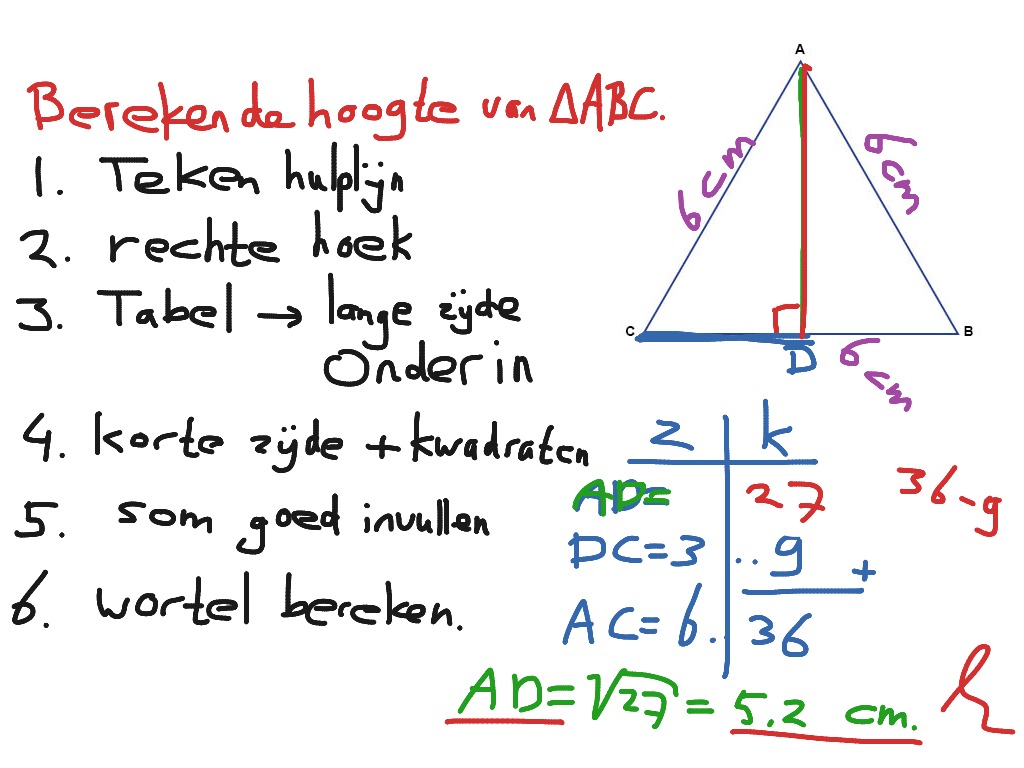 Bereken de hoogte van ΔABC.
1. Teken hulplijn
2. rechte hoek
3. Tabel → lange zijde
Onderin
4. korte zijde + kwadraten
5. som goed invullen
6. wortel bereken.
A
6 cm
6 cm
C
B
D
6 cm
z k
AD= 27
36-9
DC=3 .. 9 +
AC=6. 36
AD=√27 = 5.2 cm.
h